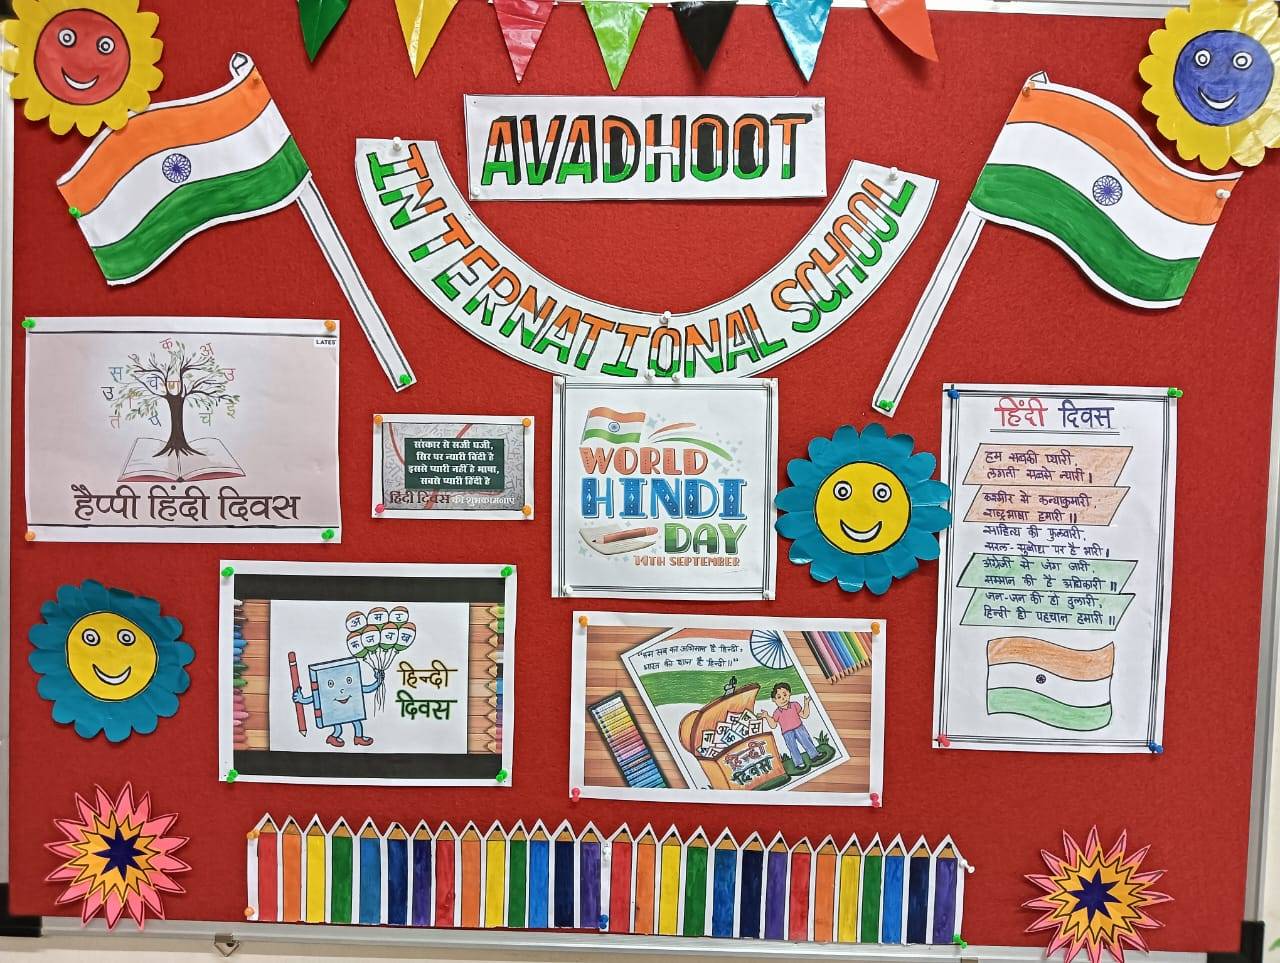 AVADHOOT
INTERNATIONAL SCHOOL
LATES
क अ
स च ण उ
उ
त प चे इ
हैप्पी हिंदी दिवस
संस्कार से सजी धजी,
सिर पर न्यारी बिंदी है
इससे प्यारी नहीं है भाषा,
सबसे प्यारी हिंदी है
हिंदी दिवस की शुभकामनाएं
WORLD
HINDI
DAY
14TH SEPTEMBER
हिंदी दिवस
हम सबकी प्यारी,
लगती सबसे न्यारी।
कश्मीर से कन्याकुमारी,
राष्ट्रभाषा हमारी॥
साहित्य की फुलवारी,
सरल-सुबोध पर है भारी।
अंग्रेजी से जंग जारी,
सम्मान की है अधिकारी॥
जन-जन की हो दुलारी,
हिन्दी ही पहचान हमारी॥
अ म र
क ज च ख
हिन्दी
दिवस
"हम सब का अभिमान है हिन्दी,
भारत की शान है हिन्दी॥"
हिन्दी
दिवस